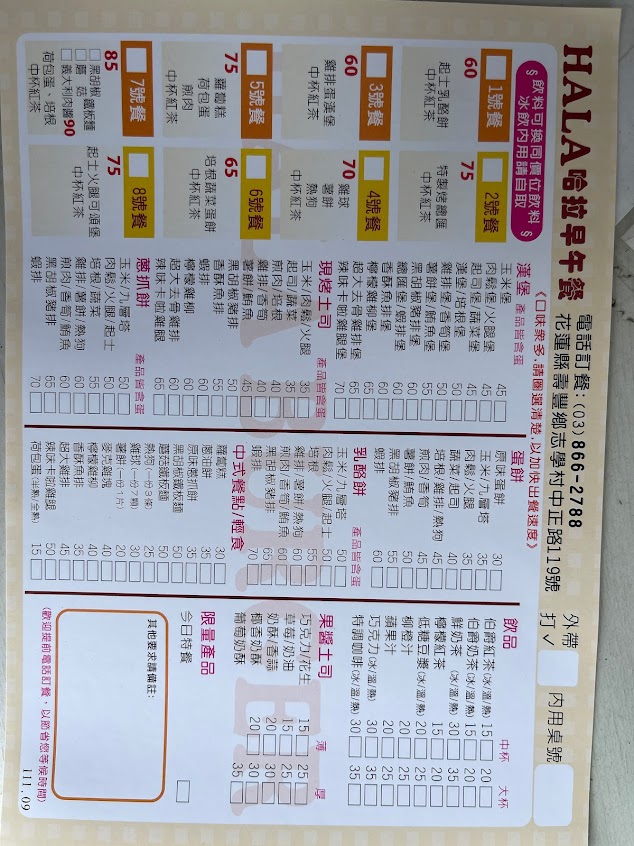 HALA哈拉早午餐
電話訂餐：(03)866-2788
花蓮縣壽豐鄉志學村中正路119號
外帶
打✓
內用桌號
§飲料可換同價位飲料§
冰飲內用請自取
《口味眾多,請圈選清楚,以加快出餐速度》
1號餐
60
起士乳酪餅
中杯紅茶
2號餐
75
特製烤總匯
中杯紅茶
3號餐
60
雞排蛋漢堡
中杯紅茶
4號餐
70
雞球
薯餅
熱狗
中杯紅茶
5號餐
75
蘿蔔糕
荷包蛋
煎肉
中杯紅茶
6號餐
65
培根蔬菜蛋餅
中杯紅茶
7號餐
85
黑胡椒鐵板麵
蘑菇
義大利肉醬90
荷包蛋、培根
中杯紅茶
8號餐
75
起士火腿可頌堡
中杯紅茶
漢堡 產品皆含蛋
玉米堡 45
肉鬆堡/火腿堡 45
起司堡/蔬菜堡 45
漢堡/培根堡 50
雞排堡/香筍堡 50
薯餅堡/鮪魚堡 50
黑胡椒豬排堡 55
總匯堡/蝦排堡 60
香酥魚排堡 60
檸檬雞柳堡 60
超大去骨雞排堡 65
辣味卡啦雞腿堡 70
現烤土司 產品皆含蛋
玉米/肉鬆/火腿 35
起司/蔬菜 35
煎肉/培根 40
雞排/香筍 40
薯餅/鮪魚 45
黑胡椒豬排 50
香酥魚排 55
蝦排 60
檸檬雞柳 55
超大去骨雞排 60
辣味卡啦雞腿 65
蔥抓餅 產品皆含蛋
玉米/九層塔 50
肉鬆/火腿/起士 50
培根/蔬菜 55
雞排/薯餅/熱狗 60
煎肉/香筍/鮪魚 60
黑胡椒豬排 65
蝦排 70
蛋餅
原味蛋餅 30
玉米/九層塔 35
肉鬆/火腿 35
蔬菜/起司 40
培根/雞排/熱狗 45
煎肉/香筍 45
薯餅/鮪魚 50
黑胡椒豬排 55
蝦排 60
乳酪餅 產品皆含蛋
玉米/九層塔 50
肉鬆/火腿/起士 50
培根 55
雞排/薯餅/熱狗 60
煎肉/香筍/鮪魚 60
黑胡椒豬排 65
蝦排 70
中式餐點/輕食
蘿蔔糕 30
蔥油餅 35
原味蔥抓餅 35
黑胡椒鐵板麵 50
蘑菇鐵板麵 50
熱狗(一份3條) 25
雞球(一份7顆) 30
薯餅(一份1片) 20
麥克雞塊 40
檸檬雞柳 40
香酥魚排 35
超大雞排 45
辣味卡啦雞腿 50
荷包蛋(半熟/全熟) 15
飲品 中杯 大杯
伯爵紅茶(冰/溫/熱) 15 20
伯爵奶茶(冰/溫/熱) 15 20
鮮奶茶 (冰/溫/熱) 30 35
檸檬紅茶 15 20
低糖豆漿(冰/溫/熱) 20 25
柳橙汁 20 25
蘋果汁 20 25
巧克力(冰/溫/熱) 30 35
特調咖啡(冰/溫/熱) 30 35
果醬土司 薄 厚
巧克力/花生 15 25
草莓/奶油 15 25
奶酥/香蒜 20 30
椰香奶酥 20 30
葡萄奶酥 35
限量產品
今日特餐
其他要求請備註：
(歡迎提前電話訂餐，以節省您等候時間)
111.09